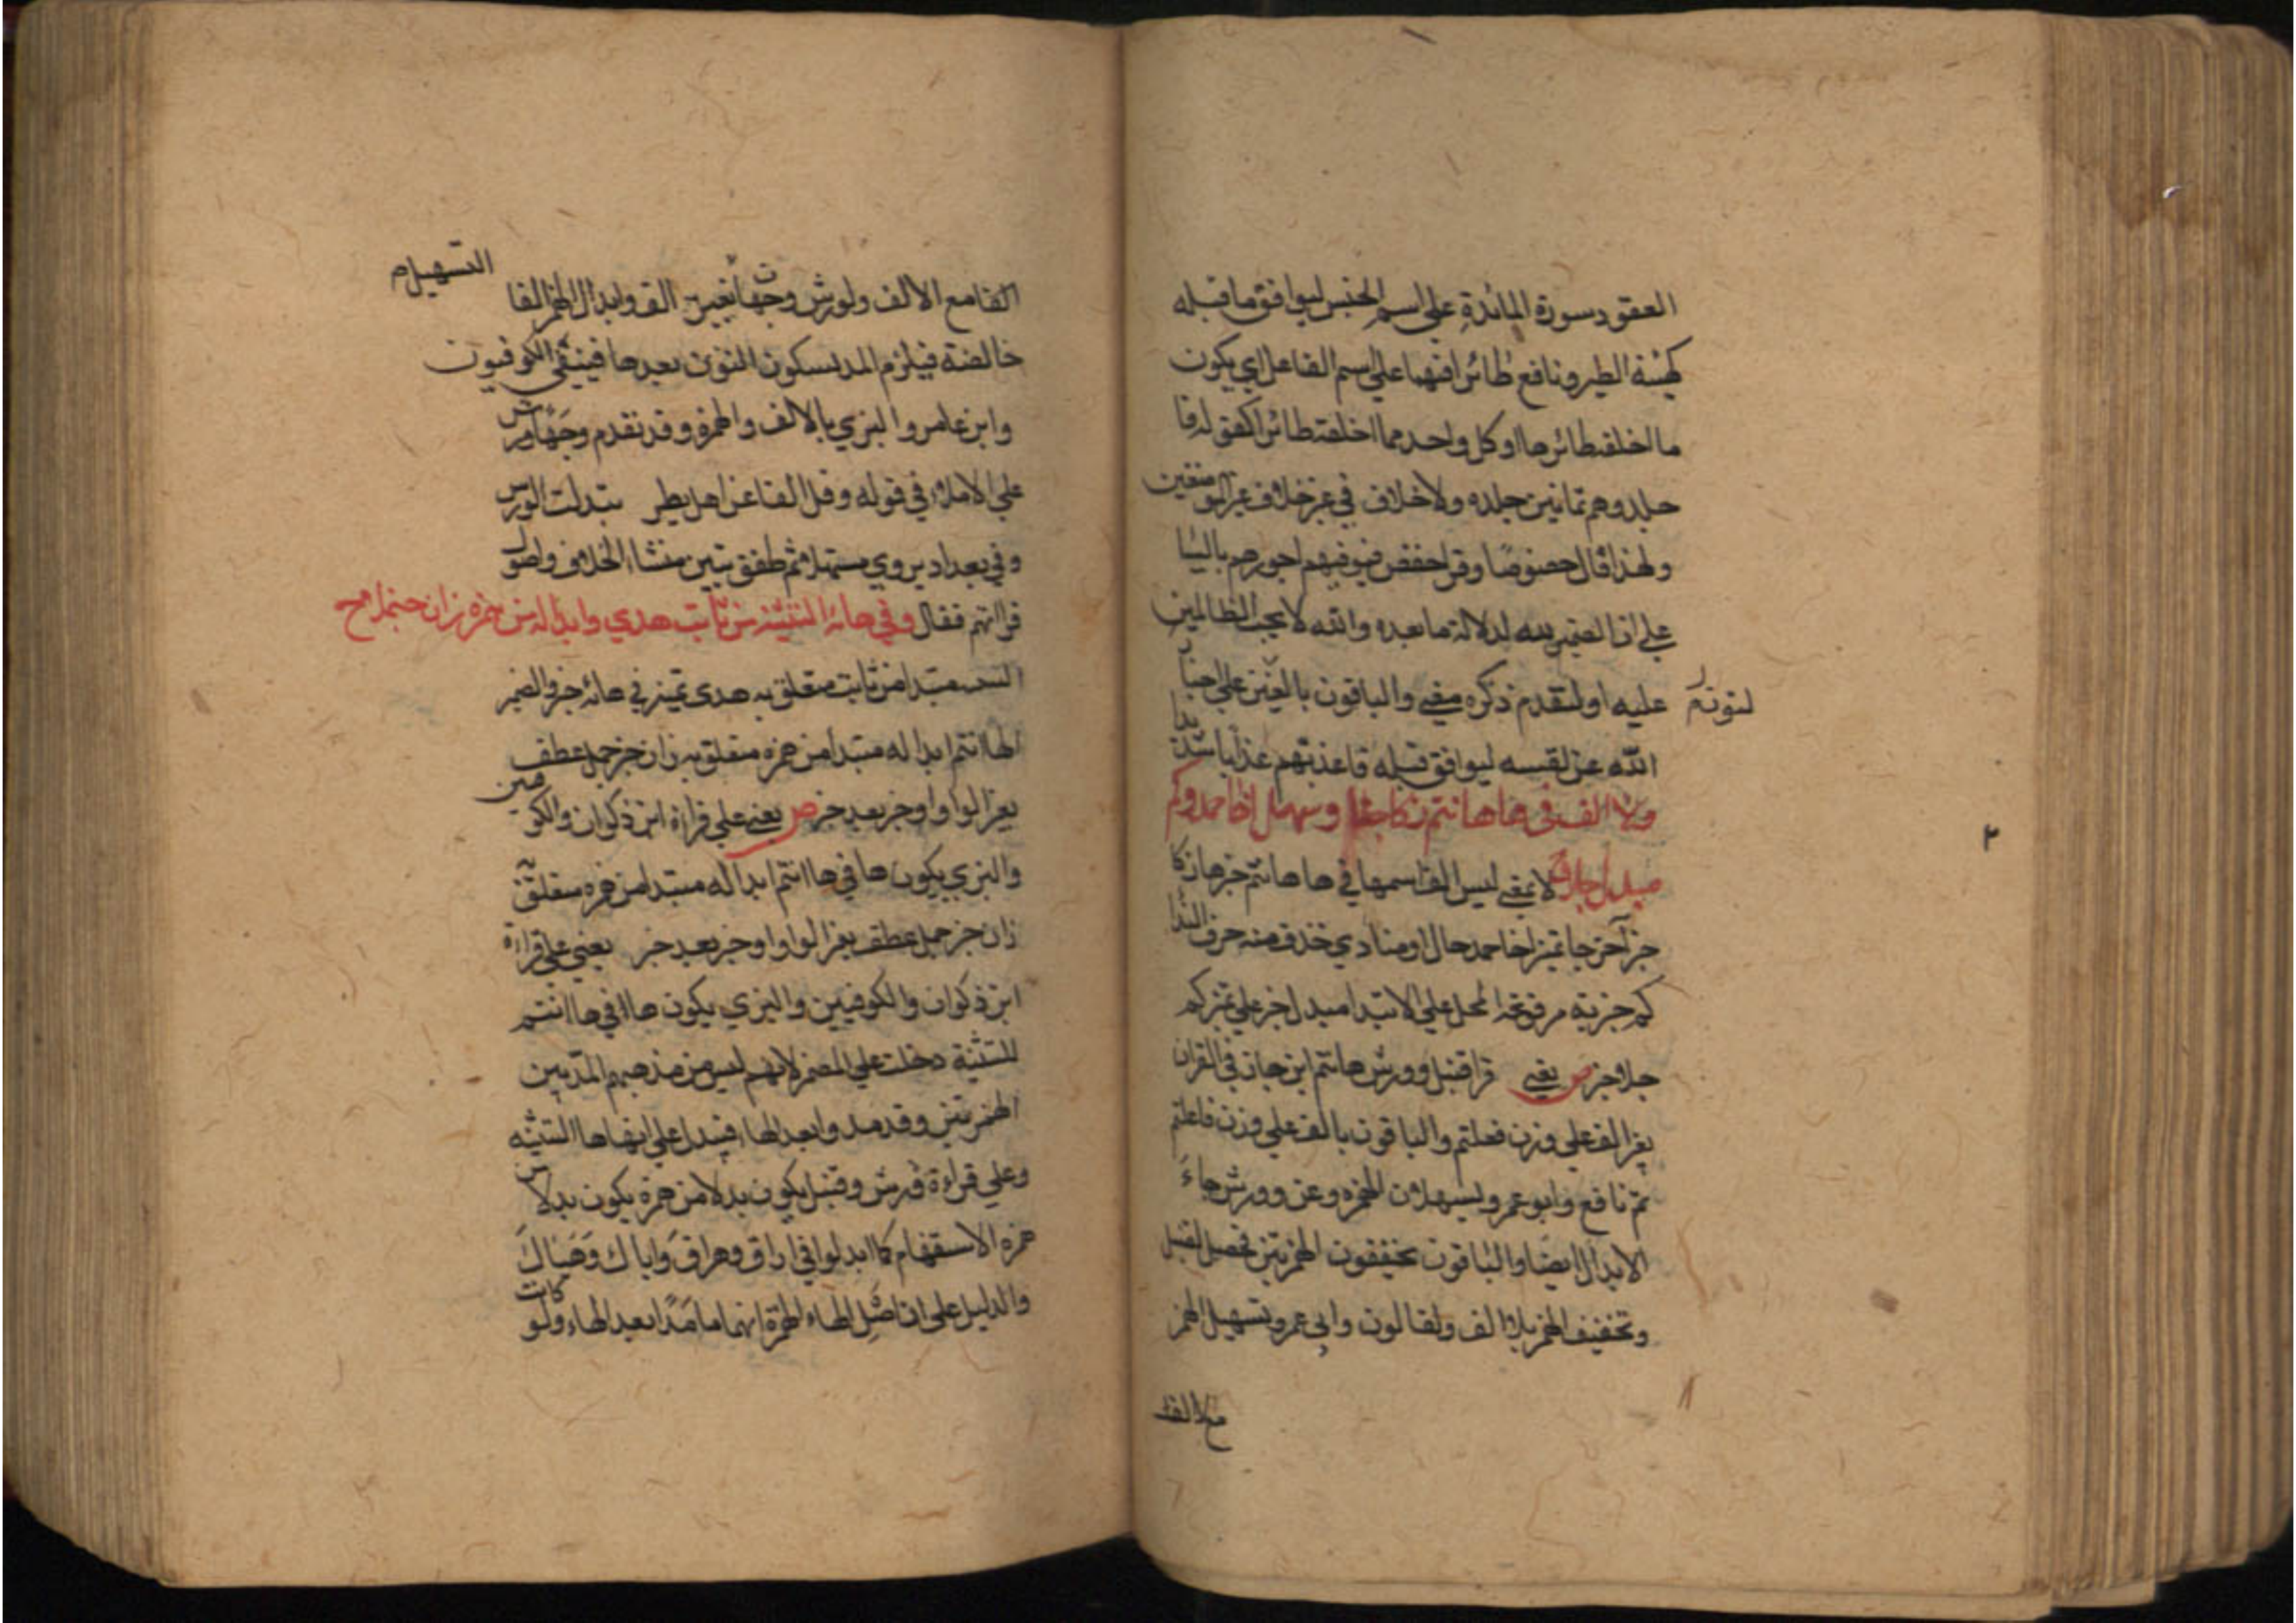 العقود سورة المائدة على اسم الجنس ليوافق ما قبله
كهيئة الطير ونافع طائرا فيهما على اسم الفاعل اي يكون
ما اخلقه طائرها او كل واحد مما اخلقه طائرا كقوله فا
جلدوهم ثمانين جلده ولا خلاف في غير
ولهذا قال خصوصا وقرا حفص فيوفيهم اجورهم باليا
على ان الضمير لله لدلالة ما بعده والله لا يحب الظالمين
عليه او لتقدم ذكره والباقون على
لنوته
الله عن نفسه ليوافق قبله فاعذبهم عذابا شديدا
ولا الف في ها هانتم زكا جنا وسهل اخا حمد وكم
مبدل جلا لا بمعنى ليس الف اسمها في ها هانتم خبرها زكا
خبر آخر جنا تميز اخا حمد حال او منادي حذف منه حرف الندا
كم خبرية مرفوعة المحل على الابتدا مبدل خبر على تميز كم
جلا خبر ص يعني قرا قنبل وورش هانتم اين جا في القران
بغير الف على وزن فعلتم والباقون بالف على وزن فاعلتم
ثم نافع وابو عمرو يسهلان الهمزه وعن ورش جاء
الابدال ايضا والباقون يخففون الهمزتين فحصل لقنبل
وتخفيف الهمز بلا الف ولقالون وابي عمرو تسهيل الهمز
مع الالف
التسهيل م
الفا مع الالف ولورش وجهان بغير الف وابدال الهمز الفا
خالصة فيلزم المد لسكون النون بعدها فيبقى الكوفيون
وابن عامر والبزي بالالف والهمزه وقد تقدم وجها ورش
على الاملاء في قوله وقل الفا عن اهل مصر تبدلت لورش
وفي بغداد يروي مسهلا ثم طفق يبين منشا الخلاف واصول
قراتهم فقال وفي هائه التنبيه من ثابت هدي وابداله من همزه زان جملا مح
التنبيه مبتدا من ثابت متعلق به هدى تميز في هائه خبر والضمير
لها انتم ابداله مبتدا من همزه متعلق به زان خبر جمل عطف
بغير الواو او خبر بعد خبر ص يعني على قراءة ابن ذكوان والكوفيين
والبزي يكون ها في ها انتم ابداله مبتدا من همزه متعلق
زان خبر جمل عطف بغير الواو او خبر بعد خبر يعني على قراءة
ابن ذكوان والكوفيين والبزي يكون ها في ها انتم
للتنبيه دخلت على المضمر لانهم ليس من مذهبهم المد بين
الهمزتين وقد مدوا بعد الهاء فيدل على انها ها التنبيه
وعلى قراءة ورش وقنبل يكون بدلا من همزة يكون بدلا من
همزه الاستفهام كما ابدلوا في اراق وهراق واياك وهياك
والدليل على ان اصل الهاء الهمزة انهما ما مدا بعد الهاء ولو كانت